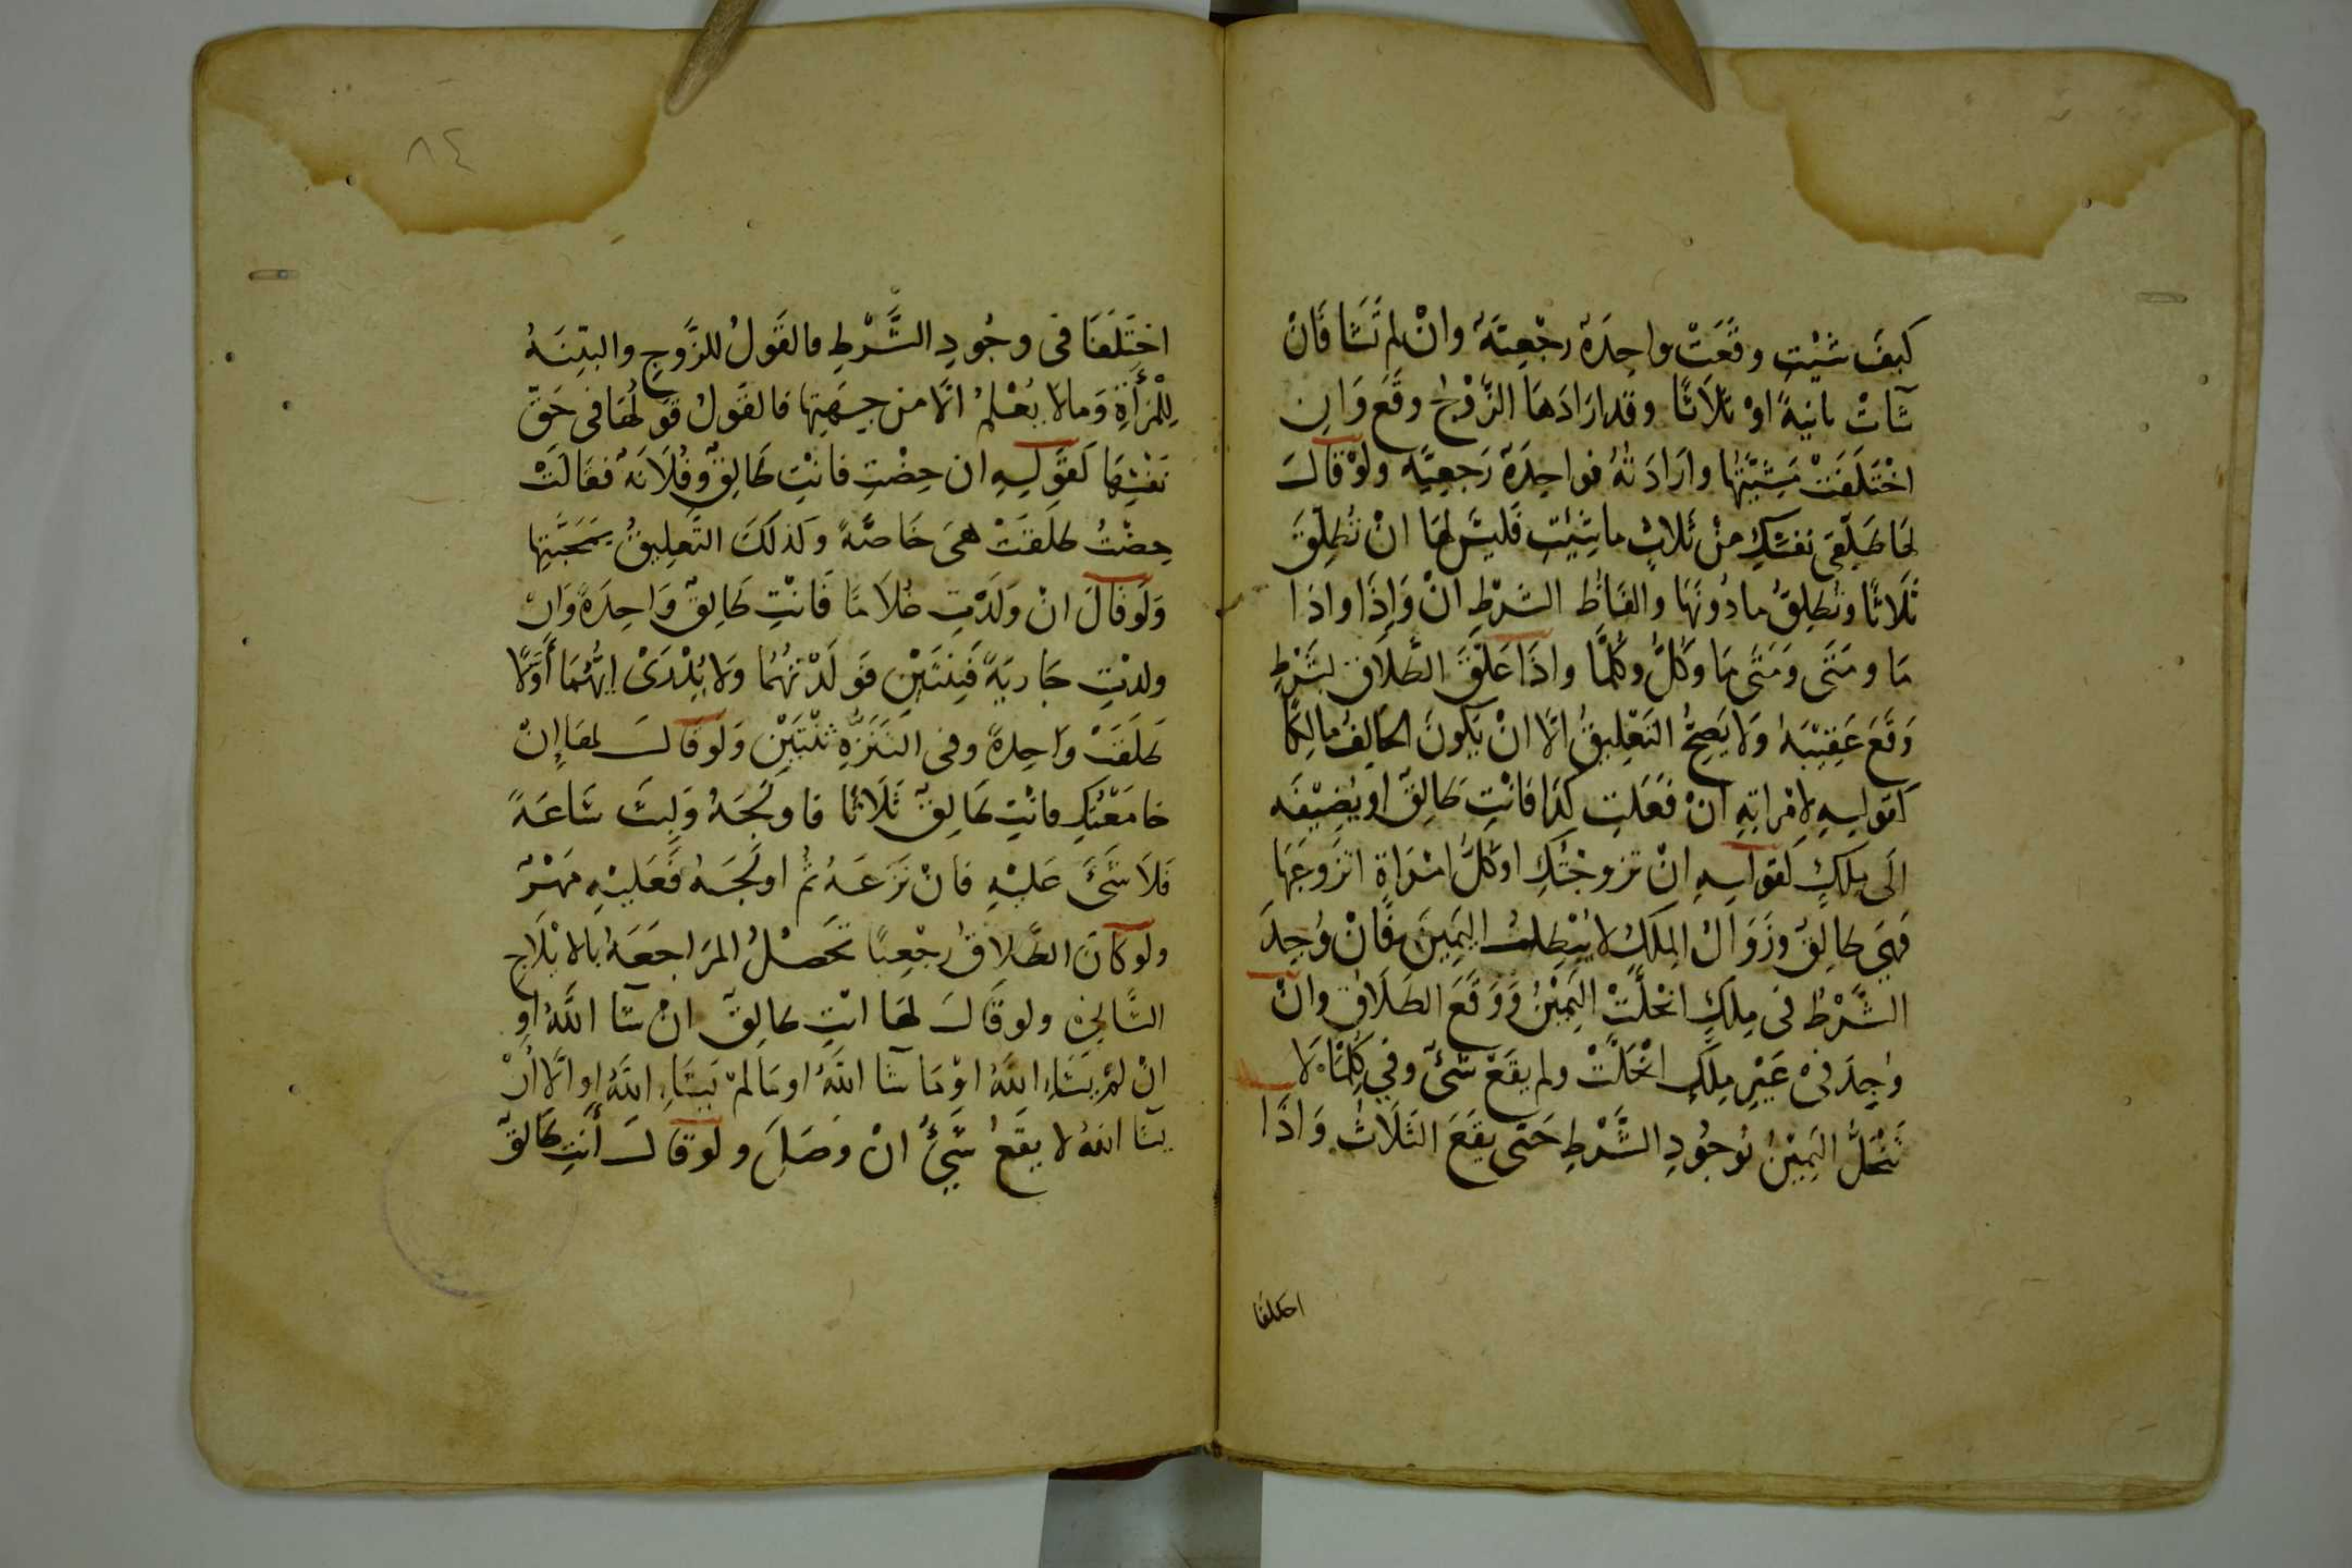 كيفَ شئْتِ وقَعَتْ واحِدَةٌ رجْعِيَّةٌ وانْ لم تَشَا فَانْ
شَآتْ ثانيَةً اوْ ثلَاثًا وقد ارَادَهَا الزَّوْجُ وقَعَ وَانِ
اخْتَلَفَتْ مَشِيَّتُها وارَادَتُهُ فواحِدَةٌ رَجعِيَّة ولوْ قالَ
لهَا طَلِّقِى نفسَكِ منْ ثَلاثٍ ما شِئتِ فَليْسَ لهَا انْ تُطلِّقَ
ثَلَاثًا وتُطلِّقُ ما دُونَهَا والفَاظُ الشرْطِ انْ وَإِذَا واذَا
مَا ومَتَى وَمَتَى مَا وَكُلُّ وكُلَّمَا واذَا عَلَّقَ الطَّلَاقَ بشَرْطٍ
وَقَعَ عَقِيْبَهُ وَلَا يَصِحُّ التَعْلِيقُ الَّا انْ يَكونَ الحَالِفُ مالِكًا
كقولِهِ لِامْراتِهِ انْ فَعَلتِ كذَا فانْتِ طالِقٌ اوْ يُضِيْفَه
الَى مِلكٍ كقولِهِ انْ تزوجْتُكِ اوكُلُّ امْرَاةٍ اتزَوجُهَا
فَهِيَ طالِقٌ وزَوَالُ المِلكِ لا يُبْطِلُ اليَمِينَ فَانْ وُجِدَ
الشَّرْطُ فى مِلكٍ انْحلَّتْ اليَمِيْنُ وَوَقَعَ الطَلَاقُ وانْ
وُجِدَ فىْ غَيْرِ مِلكٍ انْحَلَّتْ ولم يقَعْ شَىْءٌ وفِي كُلَّمَا لَا
تَنْحَلُّ اليَمِيْنُ بُوجُودِ الشَّرْطِ حَتى يقَعَ الثَلَاثُ وَاذَا
اختلفا
٨٤
اختَلَفَا فى وجُودِ الشَّرْطِ فالقَولُ للزَّوجِ والبيِّنَةُ
لِلْمَرْأَةِ وَمالا يُعْلمُ الَّا منْ جِهَتِها فالقَولُ قَولُهَا فى حَقِّ
نَفْسِهَا كَقَولِهِ ان حِضْتِ فانْتِ طالِقٌ وفُلَانَةٌ فقَالَتْ
حِضْتُ طلقَتْ هىَ خَاصَّةً وكذلكَ التَّعلِيقُ بمَحَبَّتِها
وَلَو قالَ انْ وَلَدْتِ غُلَامًا فَانْتِ طَالِقٌ وَاحِدَةً وَانْ
ولدْتِ جَاريَةً فَثِنْتَيْنِ فوَلَدْتهُمَا وَلا يُدْرَىْ ايُّهُمَا أَوَّلًا
طَلقَتْ واحِدةً وفى التَنَزُّهِ ثنْتَيْنِ وَلَو قَالَ لهَا إِنْ
جامَعْتُكِ فانْتِ طالِقٌ ثَلَاثًا فاولَجَهُ وَلبِثَ سَاعَةً
فَلَا شَىْءَ عَليْهِ فانْ نَزَعَهُ ثُم اولَجَهُ فَعَليْهِ مَهْرٌ
ولو كانَ الطَّلاقُ رجْعِيًا تحَصْلُ المرَاجَعَةُ بالايْلَاجِ
الثَّانِىْ ولو قَالَ لهَا انْتِ طالِقٌ انْ شَآ اللَّهُ اوْ
انْ لمْ يَشَاءِ اللَّهُ اوْ مَا شَآ اللَّهُ اومَا لمْ يَشَاءِ اللَّهُ او الَّا أنْ
يشَآ اللهُ لا يقَعُ شَيْءٌ انْ وَصَلَ ولو قالَ أَنْتِ طَالِقٌ